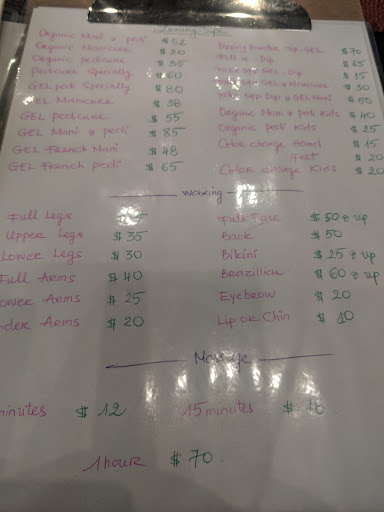 Luxury Spa
Organic Mani & pedi $52
Organic Manicure $20
Organic pedicure $35
Pedicure Specially $60
GEL pedi Specially $80
GEL Manicure $38
GEL Pedicure $55
GEL Mani & pedi $85
GEL French Mani $48
GEL French pedi $65
Dipping Powder Tip GEL $70
Fill in Dip $65
Take off GEL - Dip $15
Take off GEL & Manicure $30
Take off Dip & GEL Mani $50
Organic Mani & pedi Kids $40
Organic pedi Kids $25
Color change Hand $15
Feet $20
Color change Kids $20
Waxing
Full Legs
Upper Legs $35
Lower Legs $30
Full Arms $40
Lower Arms $25
Under Arms $20
Full Face $50 & up
Back $50
Bikini $25 & up
Brazillian $60 & up
Eyebrow $20
Lip or Chin $10
Massage
minutes $12
15 minutes $18
1 hour $70